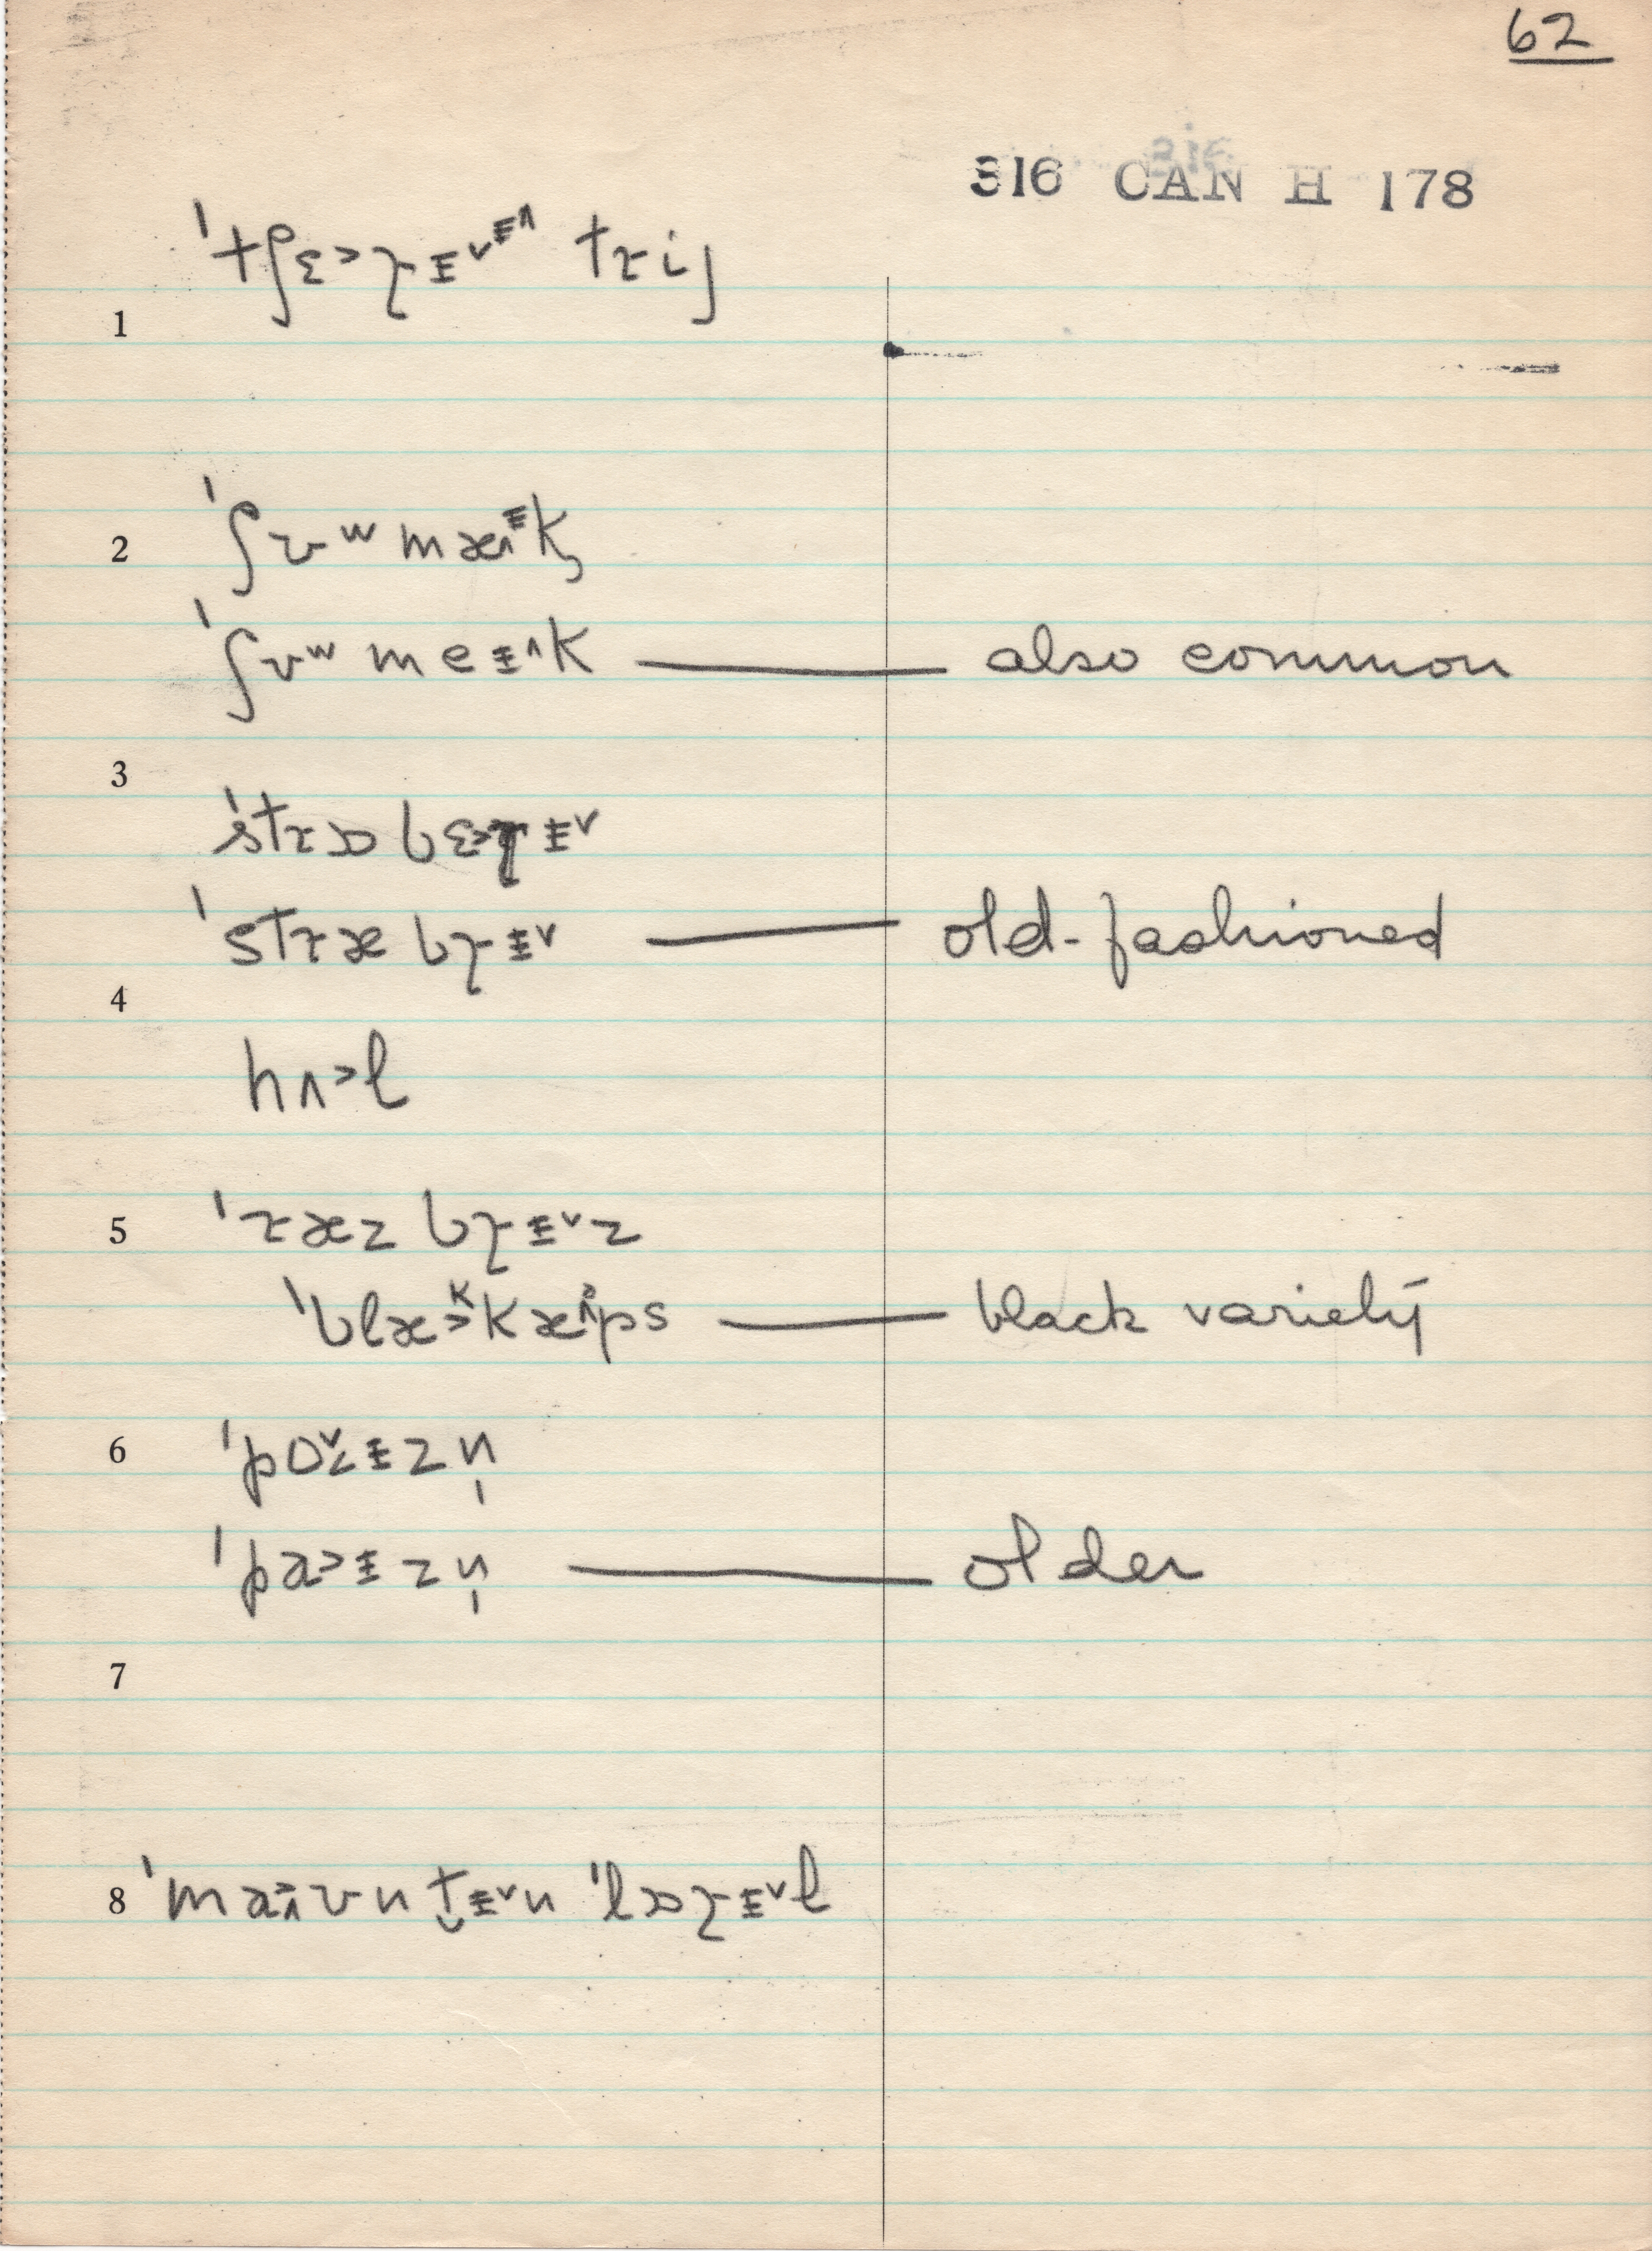 62
316 CAN H 178
1 ˈtʃɛ˃ɹɨ˅ɨ˄ trij
2 ˈʃʊʷmæ˄ɨk
ˈʃʊʷmeɨ˄k — also common
3 ˈstrɔbɛ˃ɹɨ˅
ˈstræbɹɨ˅ — old-fashioned
4 hʌ˃l
5 ˈræzbɹɨ˅z
ˈblæ˃ᵏkæ˄ᵖps — black variety
6 ˈpɒ˅ɨzn̩
ˈpa˃ɨzn̩ — older
7
8 ˈmaʊn t̬ɨ˅n ˈlɔɹɨ˅l